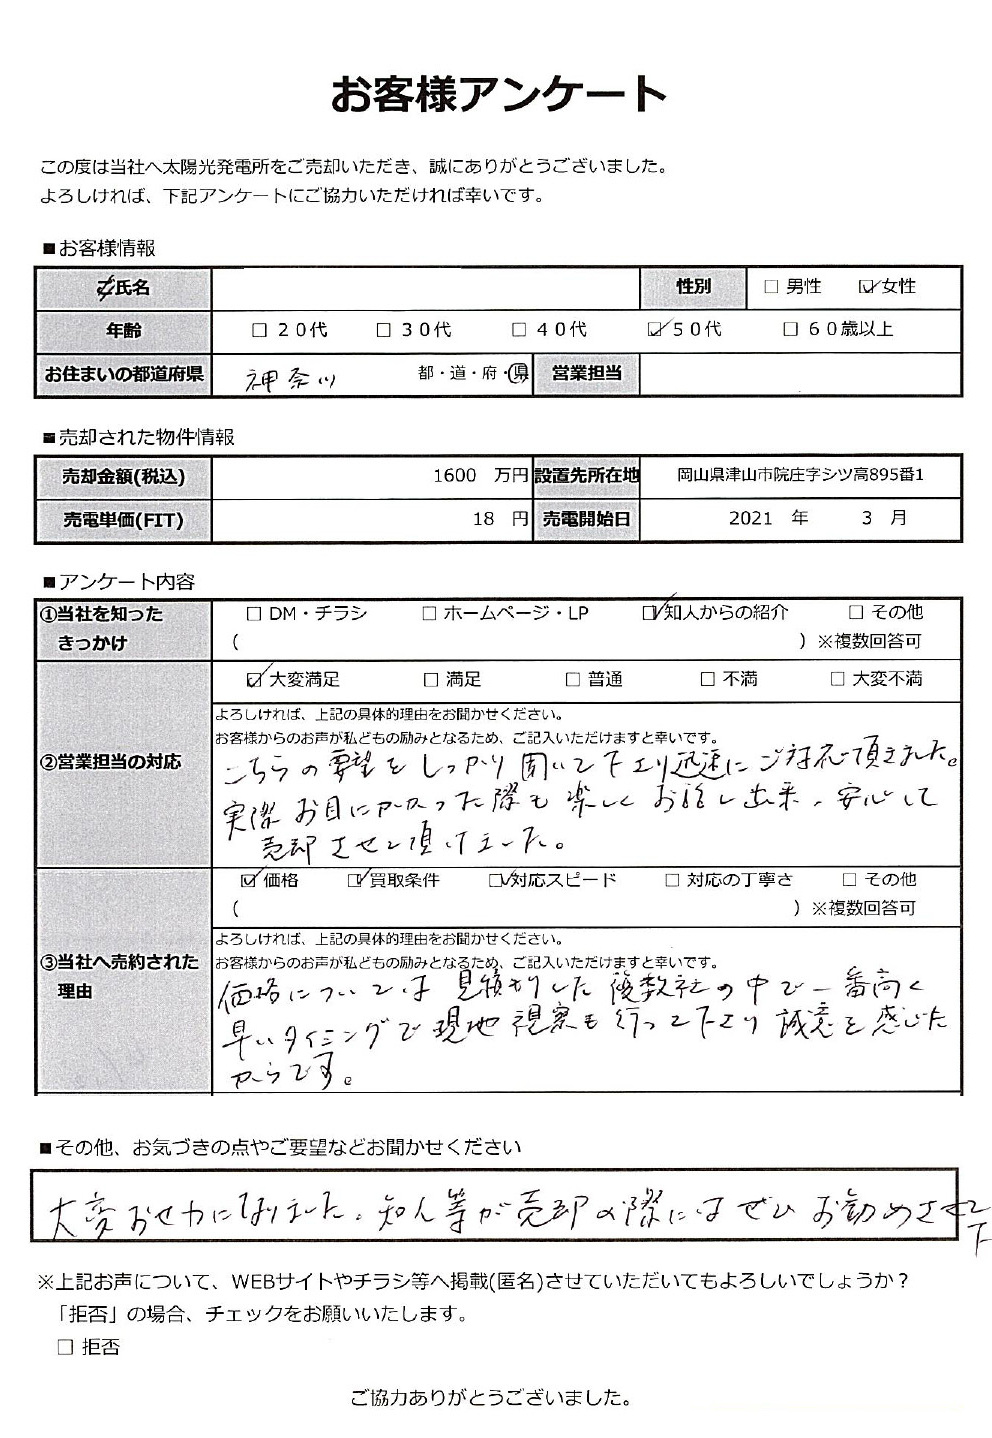 お客様アンケート
この度は当社へ太陽光発電所をご売却いただき、誠にありがとうございました。
よろしければ、下記アンケートにご協力いただければ幸いです。
■お客様情報
氏名 性別 □ 男性 ☑女性
年齢 □ 20代 □ 30代 □ 40代 ☑ 50代 □ 60歳以上
お住まいの都道府県 神奈川 都・道・府・県 営業担当
■売却された物件情報
売却金額(税込) 1600 万円 設置先所在地 岡山県津山市院庄字シツ高895番1
売電単価(FIT) 18 円 売電開始日 2021 年 3 月
■アンケート内容
①当社を知った □ DM・チラシ □ ホームページ・LP ☑知人からの紹介 □ その他
きっかけ ( ) ※複数回答可
☑大変満足 □ 満足 □ 普通 □ 不満 □ 大変不満
よろしければ、上記の具体的理由をお聞かせください。
お客様からのお声が私どもの励みとなるため、ご記入いただけますと幸いです。
②営業担当の対応
こちらの要望をしっかり聞いて下さり迅速にご対応頂きました。
実際お目にかかった際も楽しくお話し出来、安心して
売却させて頂けました。
☑価格 ☑買取条件 ☑対応スピード □ 対応の丁寧さ □ その他
( ) ※複数回答可
よろしければ、上記の具体的理由をお聞かせください。
③当社へ売約された お客様からのお声が私どもの励みとなるため、ご記入いただけますと幸いです。
理由
価格については見積りした複数社の中で一番高く
早いタイミングで現地視察も行って下さり誠意を感じた
からです。
■その他、お気づきの点やご要望などお聞かせください
大変お世力になりました。知人等が売却の際にはぜひお勧めさせて
下
※上記お声について、WEBサイトやチラシ等へ掲載(匿名)させていただいてもよろしいでしょうか？
「拒否」の場合、チェックをお願いいたします。
□ 拒否
ご協力ありがとうございました。